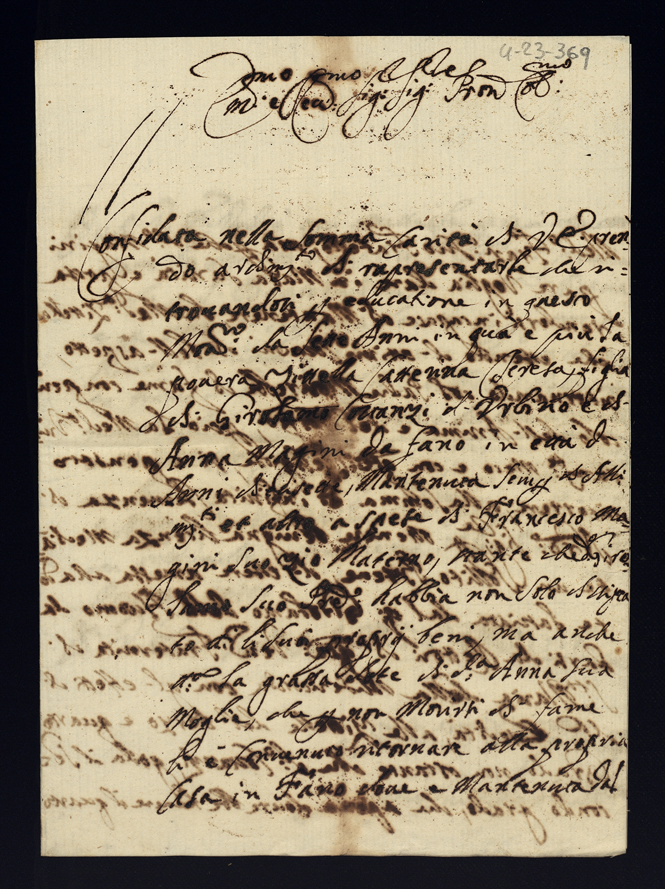 4-23-369
Sig: Sig: Pron
Confidata nella somma Carità di V. E. pren
do ardim.to di rapresentarle che ri-
trouandosi p educatione in questo
Mon.ro da sette Anni in qua e più la
pouera Zittella Cattenna Teresa, figlia
di Girolamo d'Urbino e di
Anna Magini da Fano in età d
Anni Mantenuta di Alli
m.ti et altro a spese di Francesco Ma
gini suo Zio Materno, stante che d.o Giro
lamo suo habbia non solo dissipa
to di li suoi proprij beni, ma anche
la grossa Dote di d.a Anna sua
Moglie, che p non Mourti di fame
le è Conuenuto ritornare alla propria
Casa in Fano doue è Mantenuta dal